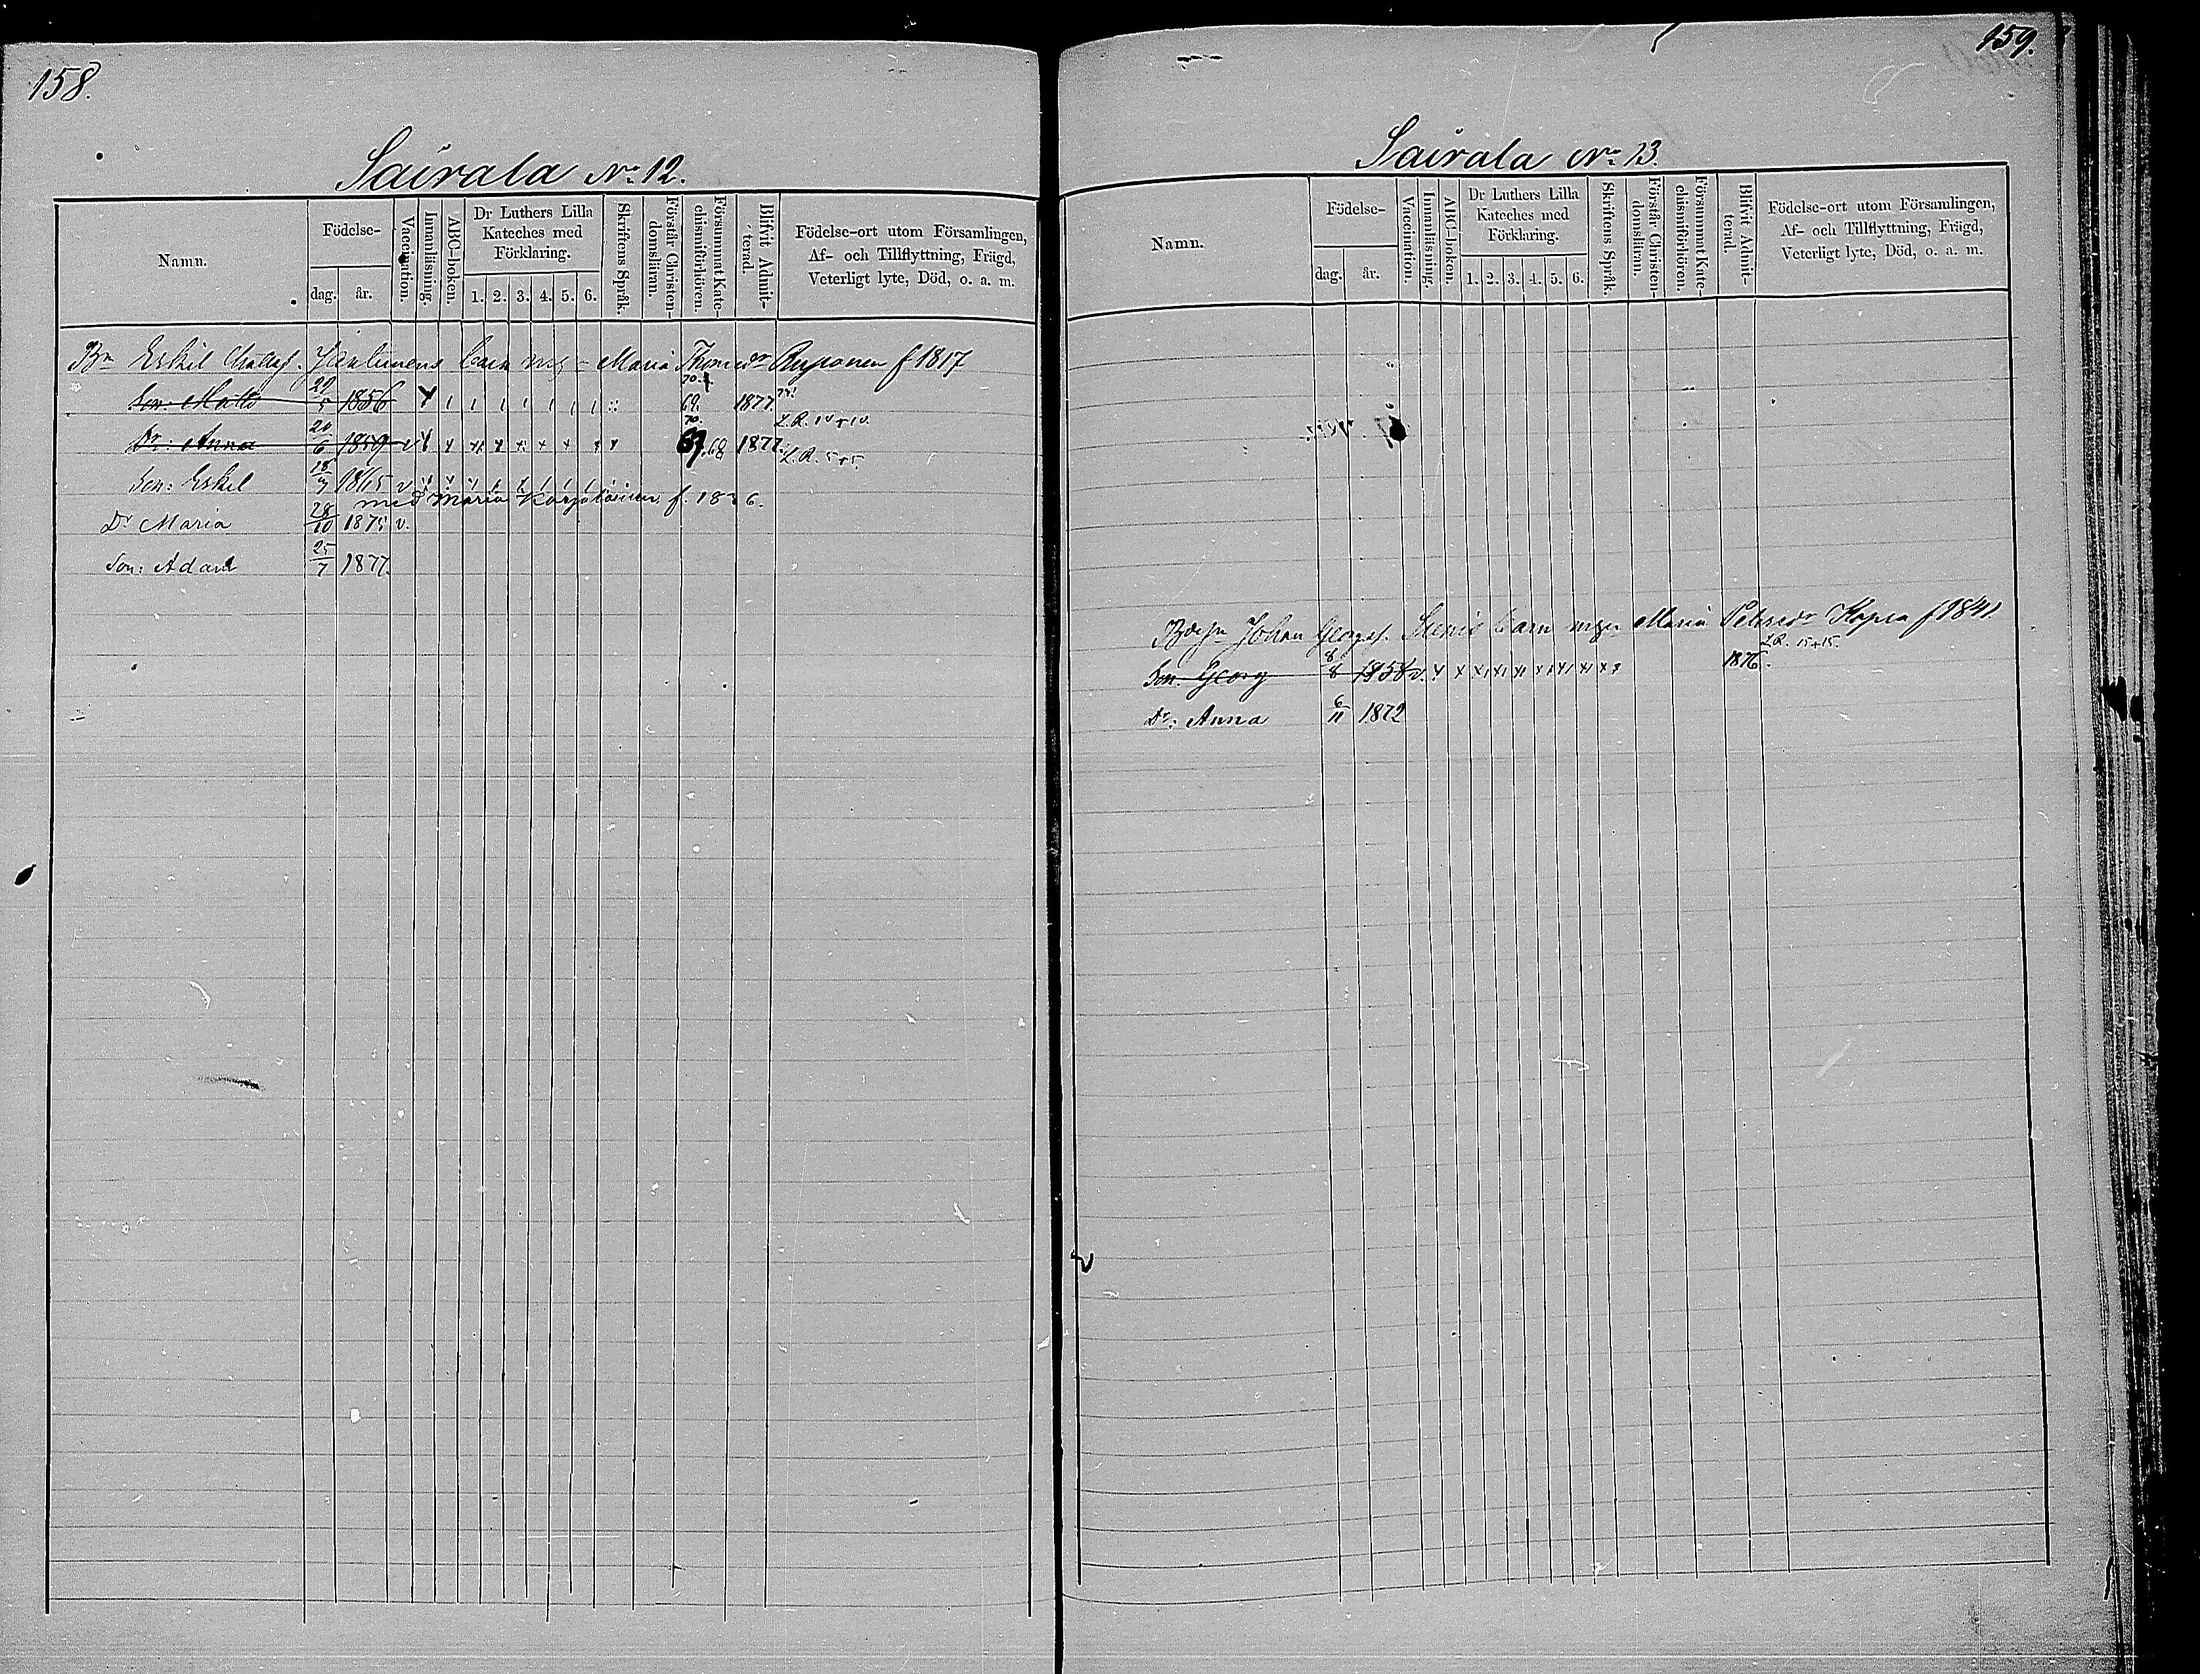 158.
Sairala No 12.
Namn.
Födelse-
dag.
år.
Vaccination.
Innanläsning.
ABC-boken.
Dr Luthers Lilla
Kateches med
Förklaring.
1. 2. 3. 4. 5. 6.
Skriftens Språk.
Förstår Christen-
domsläran.
Försummat Kate-
chismiförhören.
Blifvit Admit-
terad.
Födelse-ort utom Församlingen,
Af- och Tillflyttning, Frägd,
Veterligt lyte, Död, o. a. m.
Bn Eskil barn Maria Thomædr f 1817
70.
Son: Matts 29/5 1856 69. 1877.
70. L.R.
Dr: Anna 20/6 1859 v 67.68 1877. L.R. 5+5.
Son: Eskil 18/7 1865 v
med Maria Karjalainen f. 1836.
Dr Maria 28/10 1875 v.
Son: Adam 25/7 1877.
159.
Sairala No 13.
Namn.
Födelse-
dag.
år.
Vaccination.
Innanläsning.
ABC-boken.
Dr Luthers Lilla
Kateches med
Förklaring.
1. 2. 3. 4. 5. 6.
Skriftens Språk.
Förstår Christen-
domsläran.
Försummat Kate-
chismiförhören.
Blifvit Admit-
terad.
Födelse-ort utom Församlingen,
Af- och Tillflyttning, Frägd,
Veterligt lyte, Död, o. a. m.
Johan Georgsf. barn Maria Petersdr f 1841.
L.R. 15+15.
Son: Georg 8/8 1858 v. x x x x x x x x x x x 1876.
Dr: Anna 6/11 1872